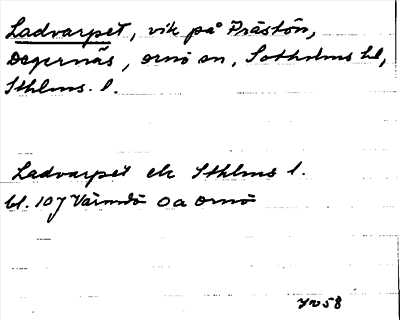 Ladvarpet, vik på Prästön,
Degernäs, Ornö sn, Sotholms hd,
Sthlms l.
Ladvarpet ek Sthlms l.
bl. 107 Värmdö Oa Ornö